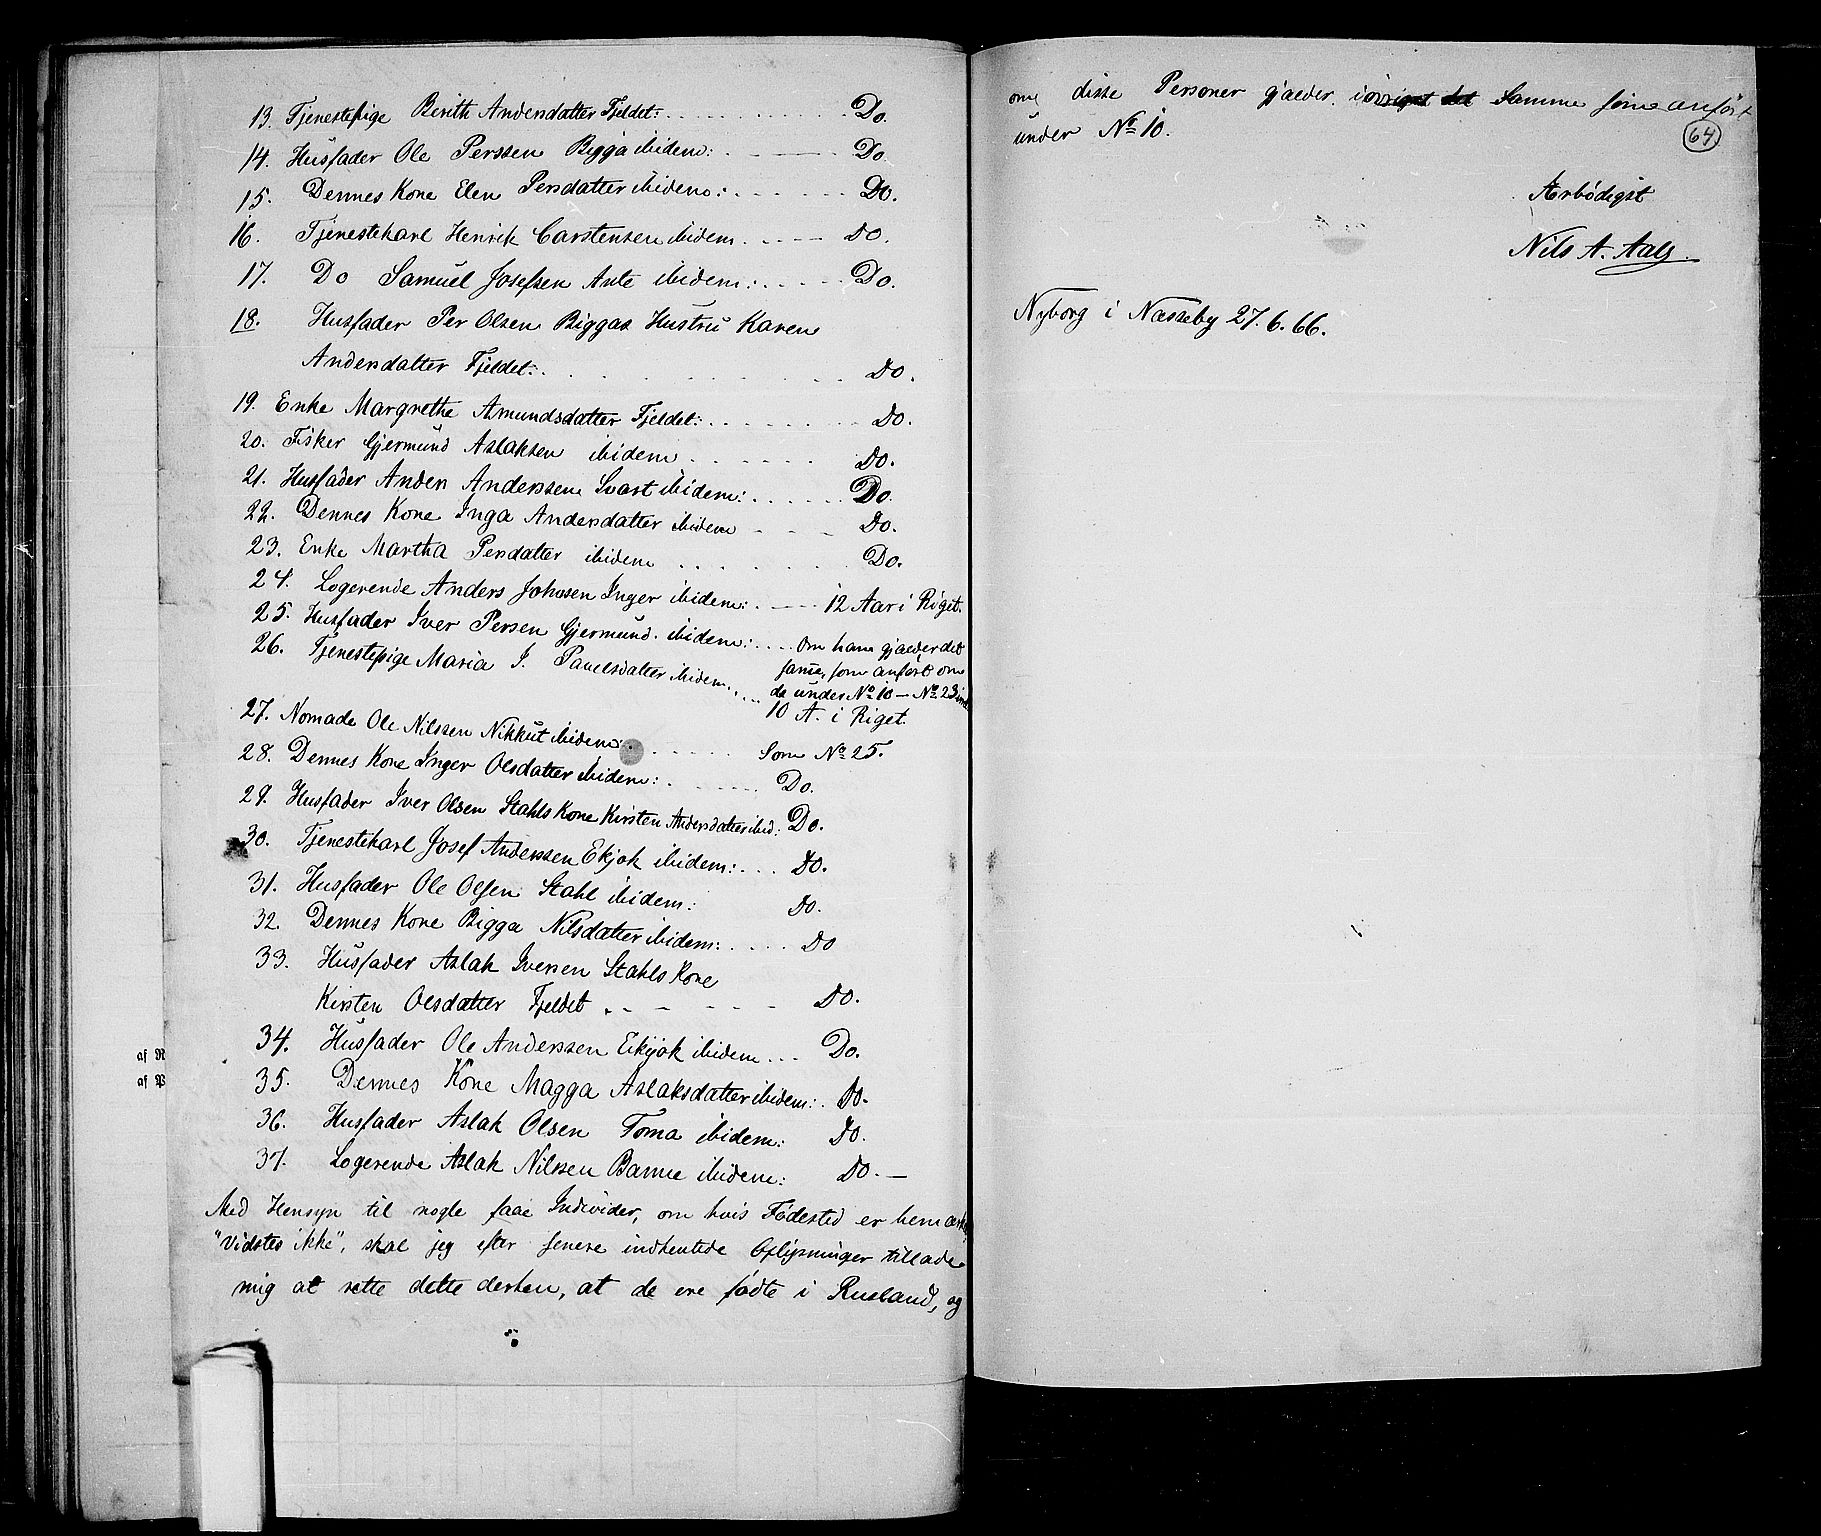 13. Tjenestepige Berith Andersdatter Fjeldet: Do.
14. Husfader Ole Perssen Bigga ibidem: Do
15. Dennes Kone Elen Persdatter ibidem: Do.
16. Tjenestekarl Henrik Carstensen ibidem. Do.
17. Do Samuel Josefsen Ante ibidem: Do.
18. Husfader Per Olsen Biggas Hustru Karen
Andersdatter Fjeldet: Do.
19. Enke Margrethe Amundsdatter Fjeldet: Do.
20. Fisker Gjermund Aslaksen ibidem Do.
21. Husfader Anders Anderssen Svart ibidem: Do.
22. Dennes Kone Inga Andersdatter ibidem Do.
23. Enke Martha Persdatter ibidem Do.
24. Logerende Anders Johnsen Inger ibidem: 12 Aar i Riget.
25. Husfader Iver Persen Gjermund. ibidem: Om ham gjælder det
samme, som anført om
de under No 10 – No 23
26. Tjenestepige Maria J. Paulsdatter ibidem 10 A. i Riget.
27. Nomade Ole Nilssen Nikkut ibidem: Som No 25.
28. Dennes Kone Inger Olsdatter ibidem: Do.
29. Husfader Iver Olsen Stahls Kone Kirsten Andersdatter ibid: Do.
30. Tjenestekarl Josef Anderssen Ekjok ibidem: Do.
31. Husfader Ole Olsen Stahl ibidem: Do.
32. Dennes Kone Bigga Nilsdatter ibidem: Do
33. Husfader Aslak Iversen Stahls Kone
Kirsten Olsdatter Fjeldet Do.
34. Husfader Ole Anderssen Eikjok ibidem Do.
35. Dennes Kone Magga Aslaksdatter ibidem: Do.
36. Husfader Aslak Olsen Toma ibidem: Do.
37. Logerende Aslak Nilssen Banne ibidem: Do. —
Med Hensyn til nogle faae Individer, om hvis Fødested er bemærket
"Vidstes ikke", skal jeg efter senere indhentede Oplysninger tillade
mig at rette dette derhen, at de ere fødte i Rusland, og
af R
af P
om disse Personer gjælder iøvrigt det Samme som anført
under No 10.
64
Ærbødigst
Nils A. Aals
Nyborg i Næsseby 27.6.66.